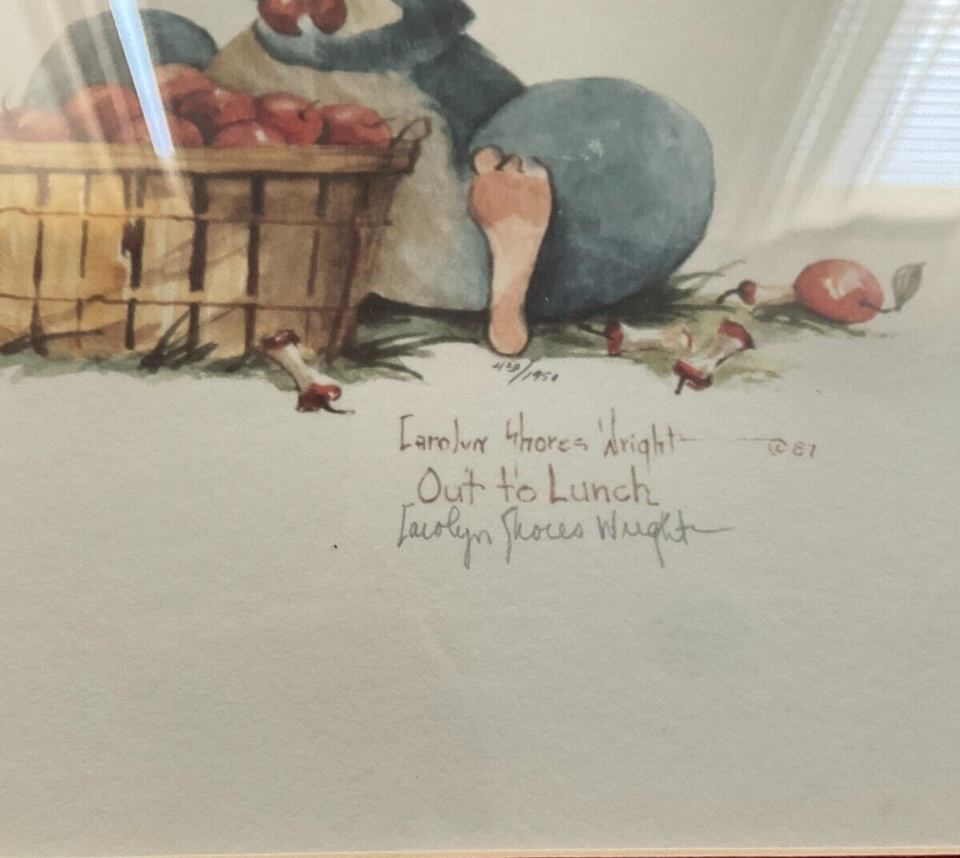 /1950
Carolyn Shores Wright © 87
Out to Lunch
Carolyn Shores Wright